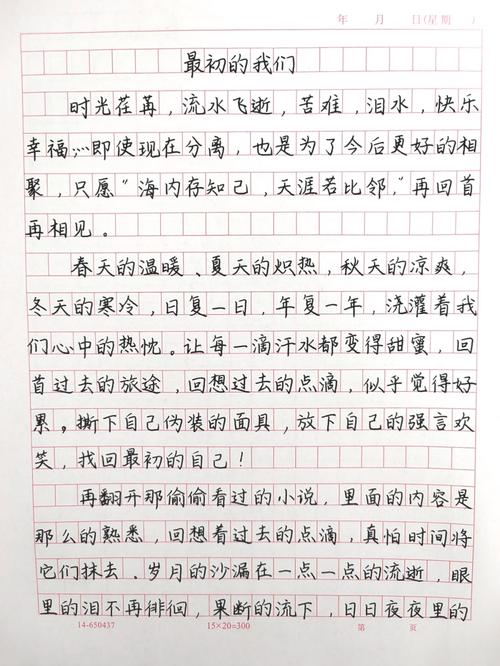 年 月 日(星期 )
最初的我们
时光荏苒，流水飞逝，苦难，泪水，快乐
幸福……即使现在分离，也是为了今后更好的相
聚，只愿“海内存知己，天涯若比邻，”再回首
再相见。
春天的温暖、夏天的炽热，秋天的凉爽，
冬天的寒冷，日复一日，年复一年，浇灌着我
们心中的热忱。让每一滴汗水都变得甜蜜，回
首过去的旅途，回想过去的点滴，似乎觉得好
累。撕下自己伪装的面具，放下自己的强言欢
笑，找回最初的自己！
再翻开那偷偷看过的小说，里面的内容是
那么的熟悉，回想着过去的点滴，真怕时间将
它们抹去。岁月的沙漏在一点一点的流逝，眼
里的泪不再徘徊，果断的流下，日日夜夜里的
14-650437 15×20=300 第 页